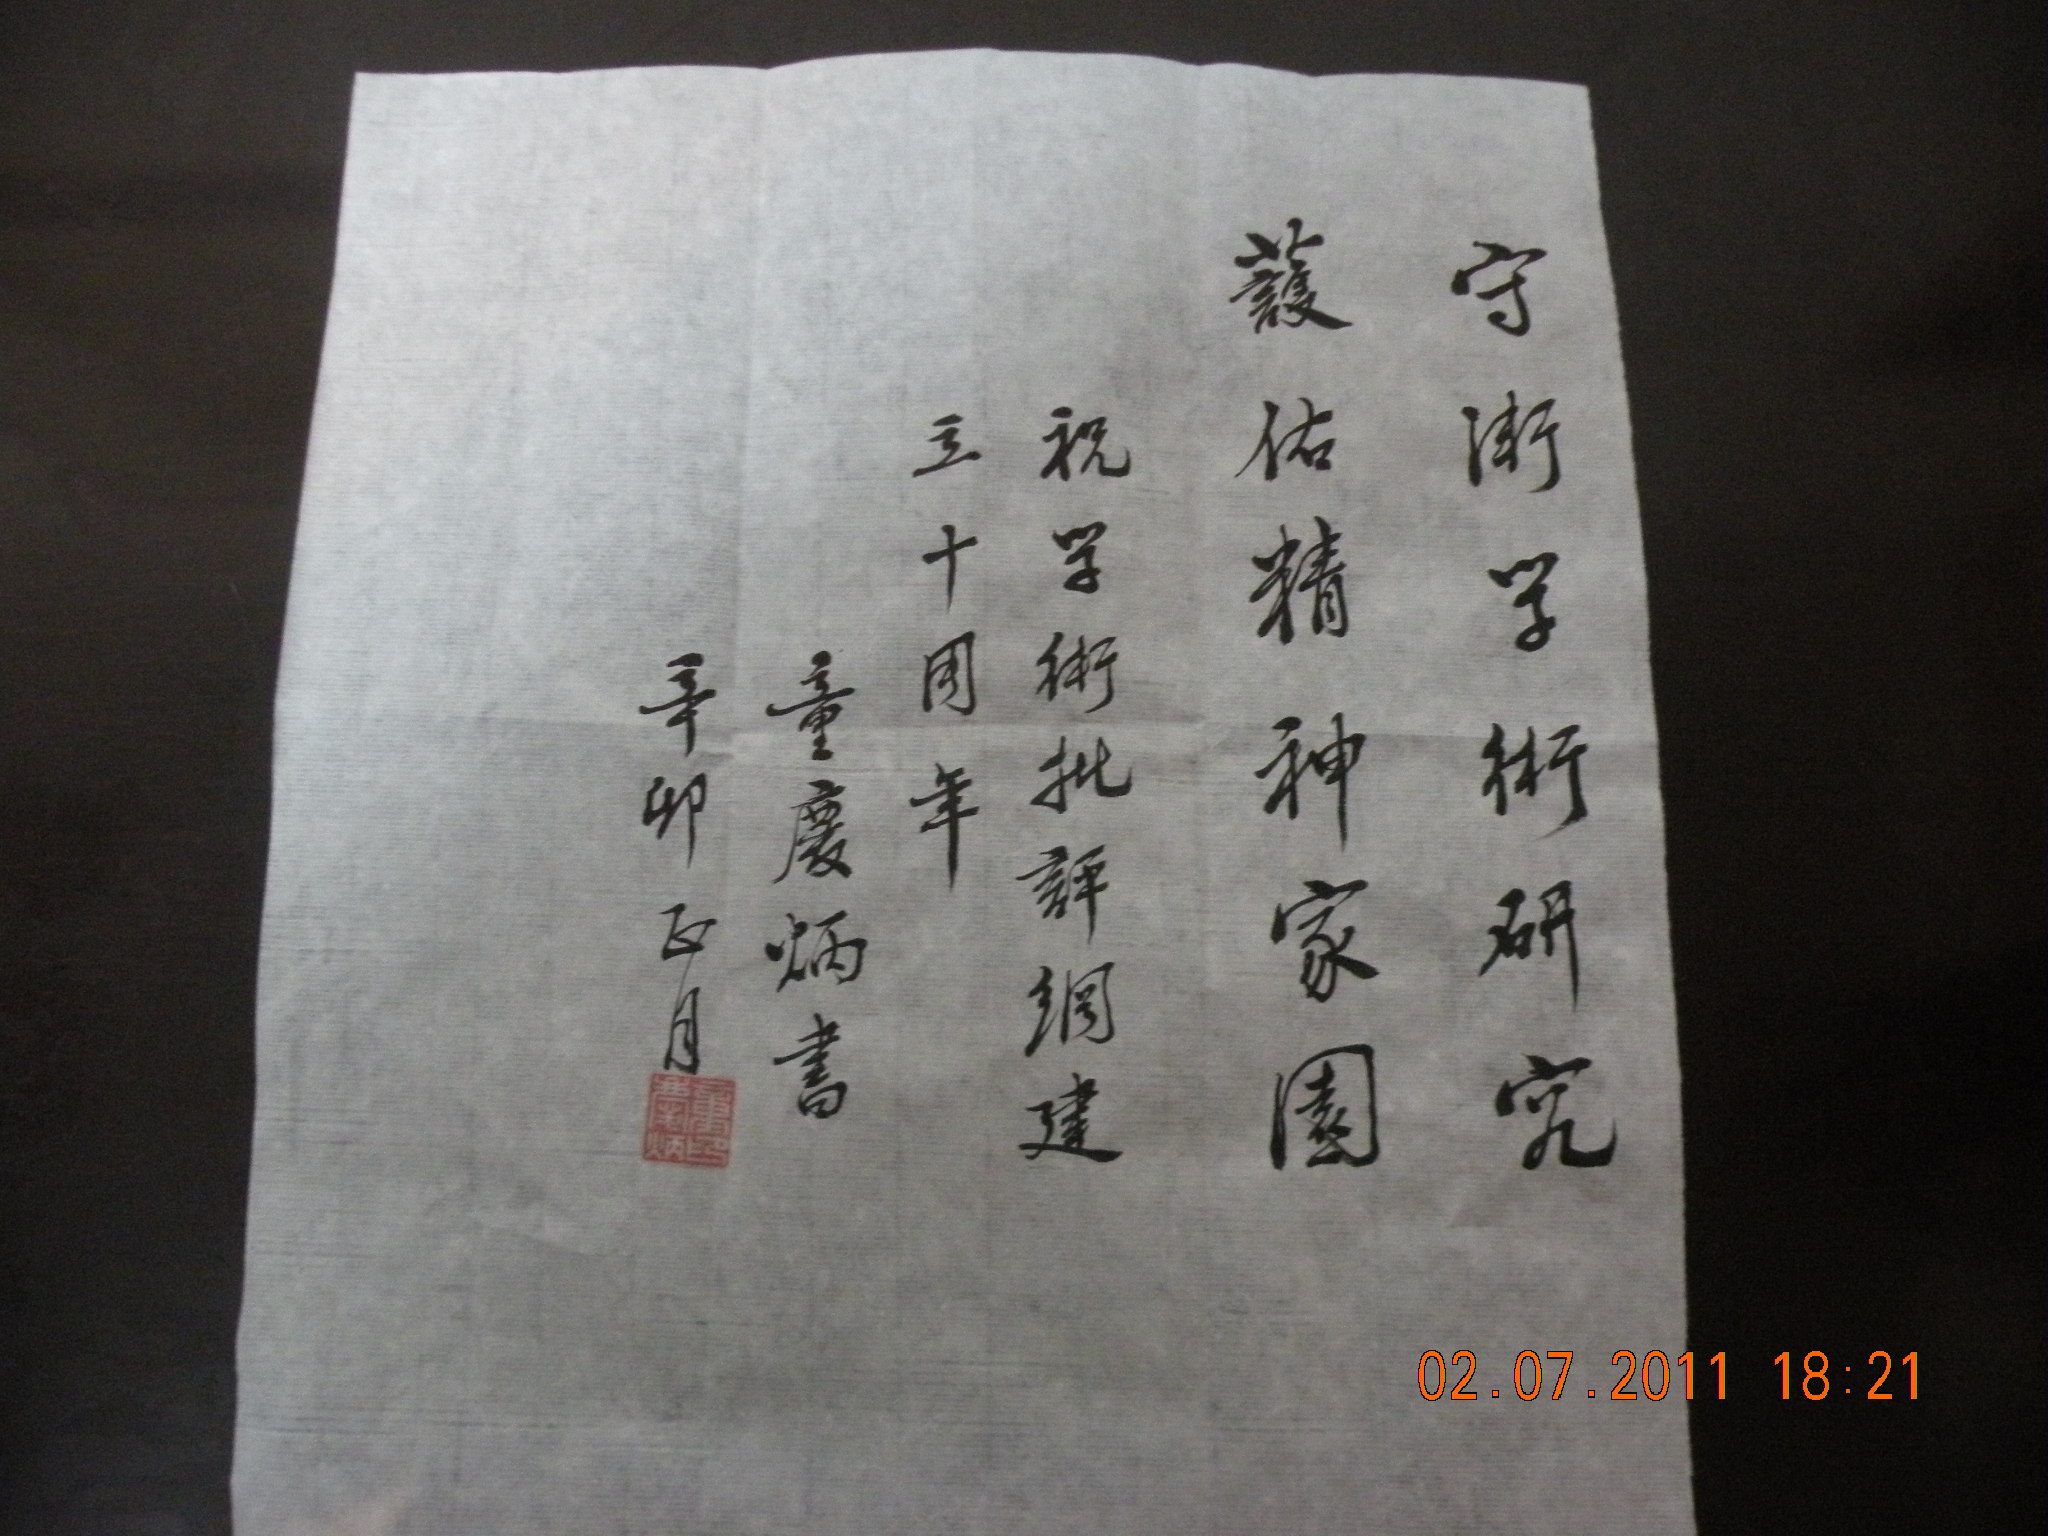 守衛学術研究
護佑精神家園
祝学術批評網建
立十周年
童慶炳書
辛卯正月
02.07.2011 18:21